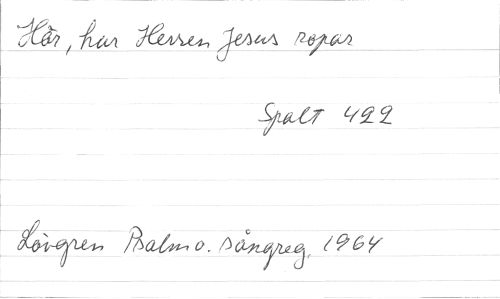 Hör, hur Herren Jesus ropar
Spalt 422
Lövgren Psalm o. sångreg. 1964